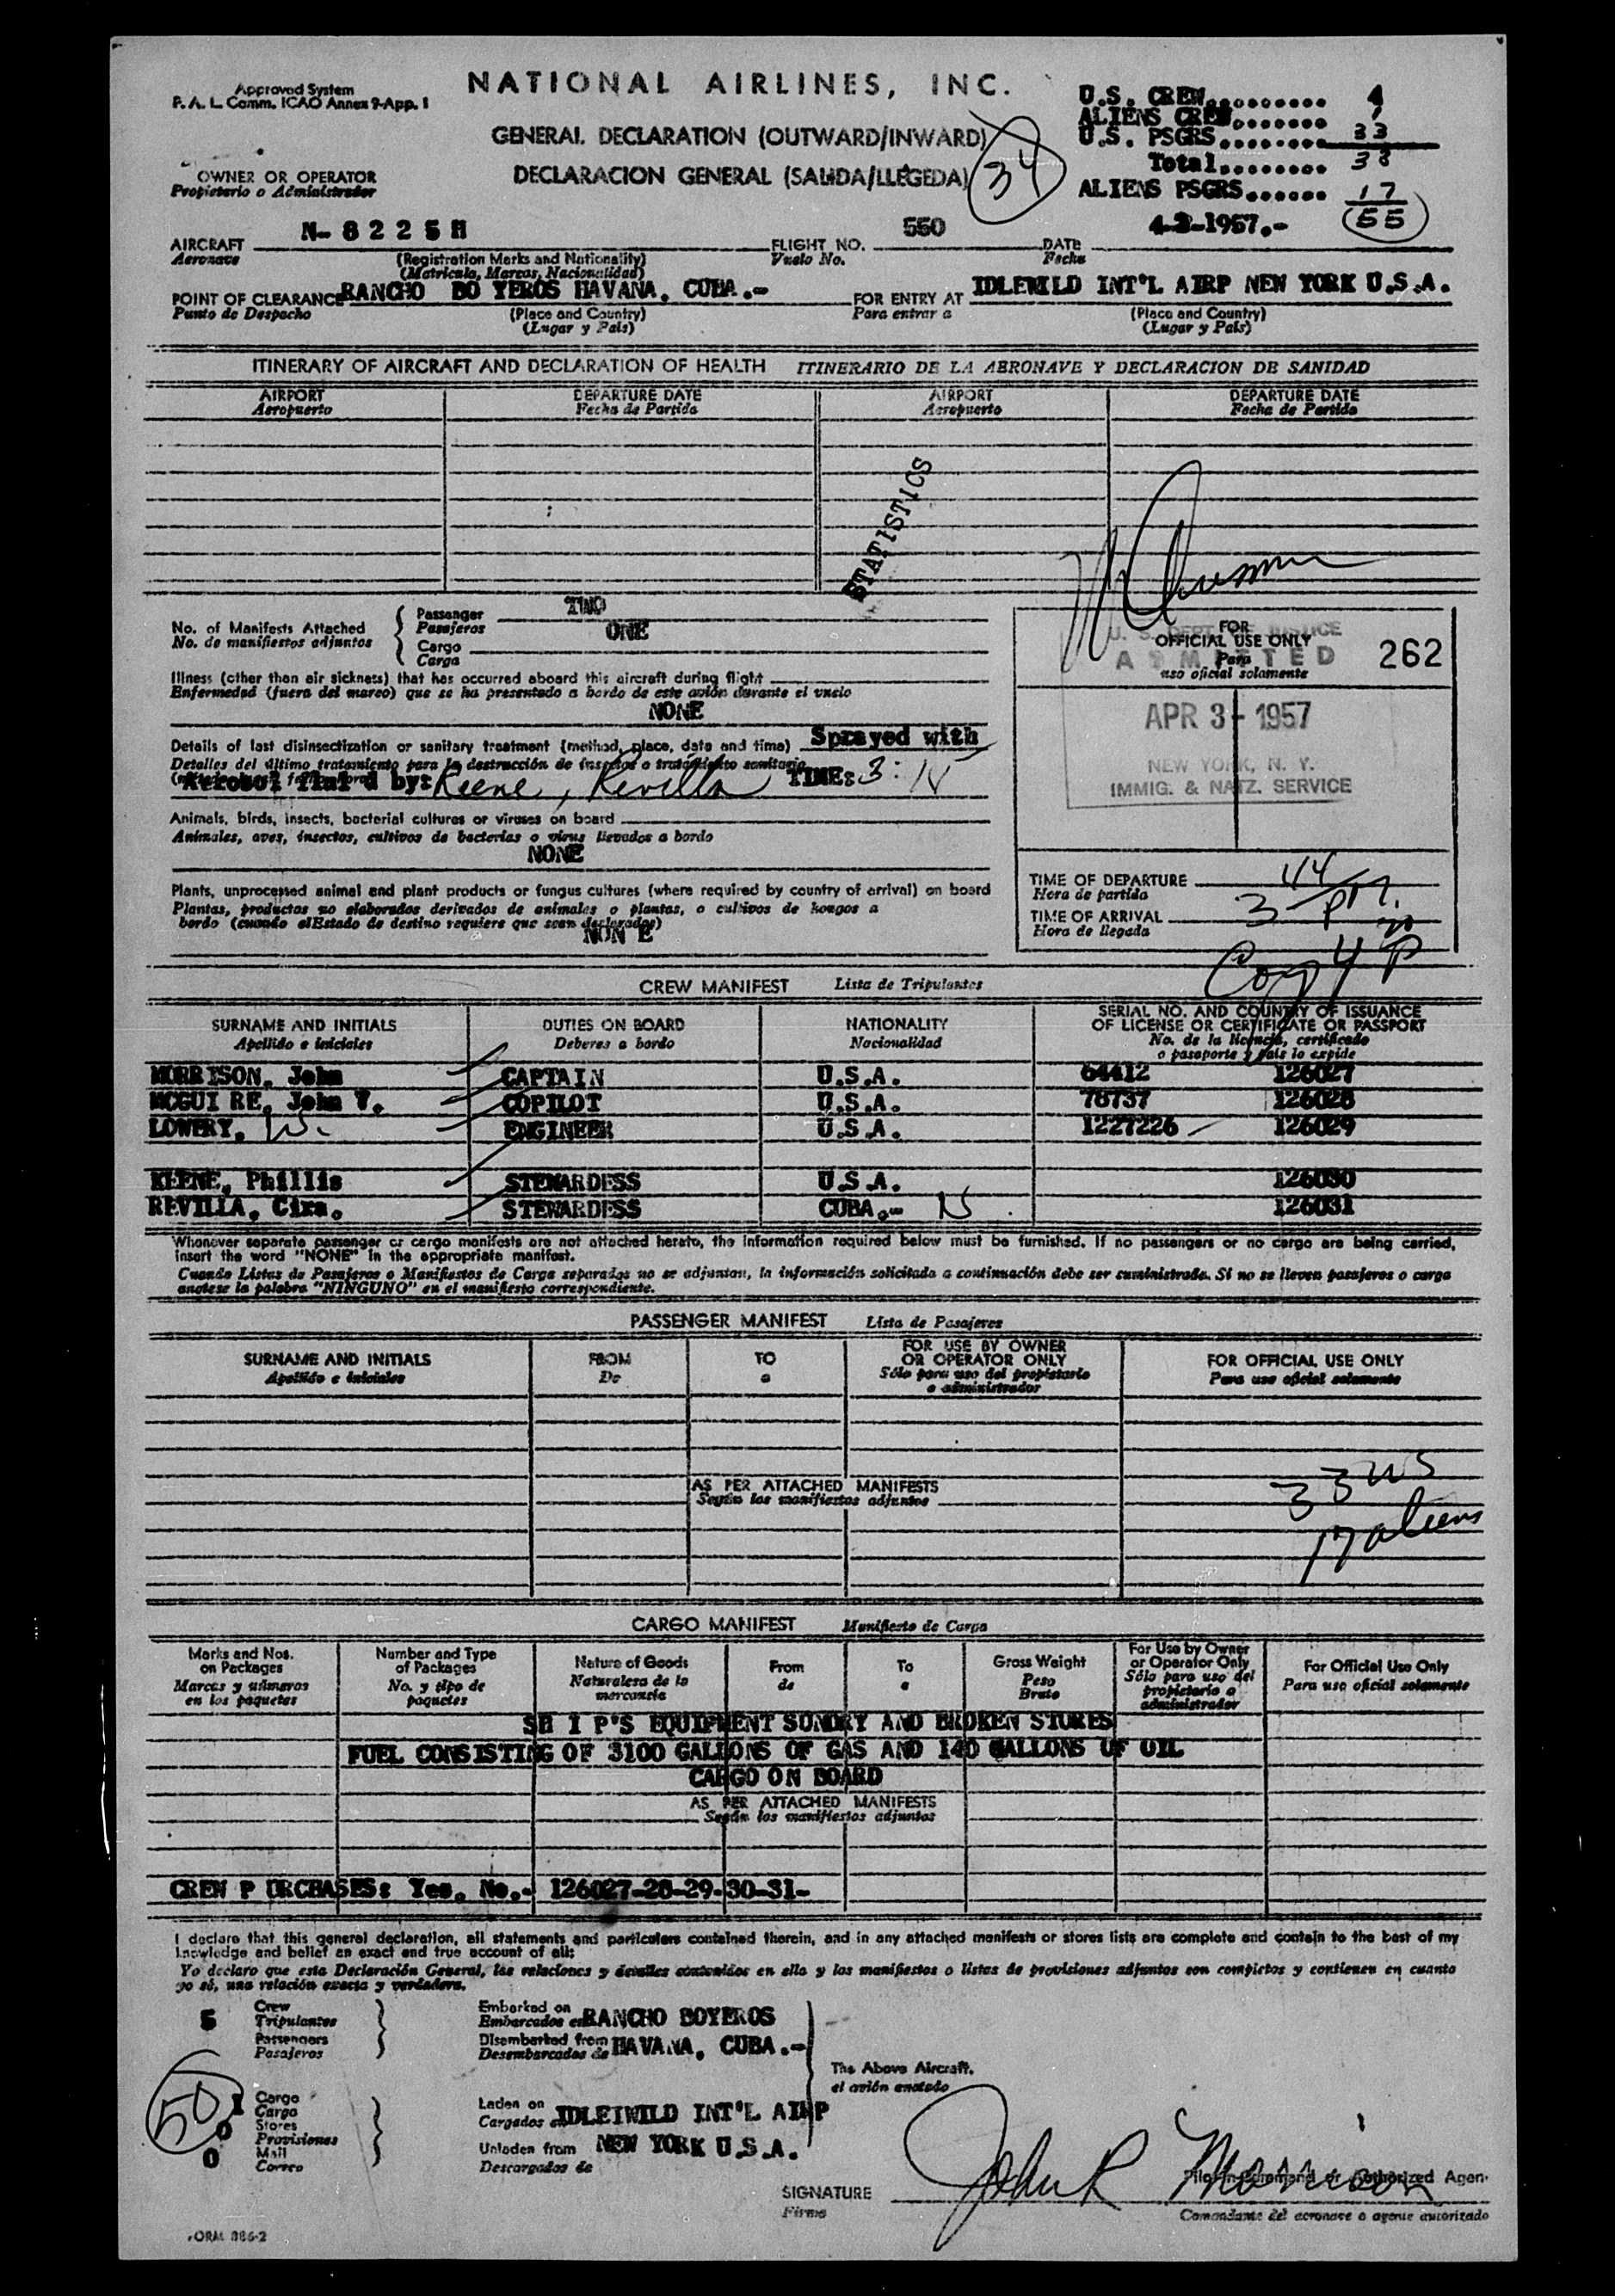 Approved System
F. A. L. Comm. ICAO Annex 9-App. 1
NATIONAL AIRLINES, INC.
GENERAL DECLARATION (OUTWARD/INWARD)
DECLARACION GENERAL (SALIDA/LLEGEDA)
34
U.S. CREW.......... 4
ALIENS CREW....... 1
U.S. PSGRS........ 33
Total........ 38
ALIENS PSGRS...... 17
55
OWNER OR OPERATOR
Propietario o Administrador
AIRCRAFT N- 8 2 2 5 H FLIGHT NO. 550 DATE 4-3-1957.-
Aeronave (Registration Marks and Nationality) Vuelo No. Fecha
(Matricula, Marcas, Nacionalidad)
POINT OF CLEARANCE RANCHO BO YEROS HAVANA, CUBA.- FOR ENTRY AT IDLEWILD INT'L AIRP NEW YORK U.S.A.
Punto de Despacho (Place and Country) Para entrar a (Place and Country)
(Lugar y Pais) (Lugar y Pais)
ITINERARY OF AIRCRAFT AND DECLARATION OF HEALTH ITINERARIO DE LA AERONAVE Y DECLARACION DE SANIDAD
AIRPORT DEPARTURE DATE AIRPORT DEPARTURE DATE
Aeropuerto Fecha de Partida Aeropuerto Fecha de Partida
STATISTICS
No. of Manifests Attached
No. de manifiestos adjuntos
Passenger TWO
Pasajeros
Cargo ONE
Carga
Illness (other than air sickness) that has occurred aboard this aircraft during flight
Enfermedad (fuera del mareo) que se ha presentado a bordo de este avión durante el vuelo
NONE
Details of last disinsectization or sanitary treatment (method, place, date and time) Sprayed with
Detalles del último tratamiento para la destrucción de insectos o tratamiento sanitario
Aerosol by: Keene, Revilla TIME: 3:15
Animals, birds, insects, bacterial cultures or viruses on board
Animales, aves, insectos, cultivos de bacterias o virus llevados a bordo
NONE
Plants, unprocessed animal and plant products or fungus cultures (where required by country of arrival) on board
Plantas, productos no elaborados derivados de animales o plantas, o cultivos de hongos a
bordo (cuando elEstado de destino requiere que sean declarados)
NON E
FOR
OFFICIAL USE ONLY
Para
uso oficial solamente
U. S. DEPT. OF JUSTICE
ADMITTED
262
APR 3 - 1957
NEW YORK, N. Y.
IMMIG. & NATZ. SERVICE
TIME OF DEPARTURE
Hora de partida
TIME OF ARRIVAL
Hora de llegada
CREW MANIFEST Lista de Tripulantes
SURNAME AND INITIALS DUTIES ON BOARD NATIONALITY SERIAL NO. AND COUNTRY OF ISSUANCE
OF LICENSE OR CERTIFICATE OR PASSPORT
Apellido e iniciales Deberes a bordo Nacionalidad No. de la licencia, certificado
o pasaporte y país lo expide
MORRISON, John CAPTAIN U.S.A. 64412 126027
MCGUI RE, John T. COPILOT U.S.A. 78737 126028
LOWERY, W. ENGINEER U.S.A. 1227226 126029
KEENE, Phillis STEWARDESS U.S.A. 126030
REVILLA, Cira. STEWARDESS CUBA.- 126031
Whenever separate passenger or cargo manifests are not attached hereto, the information required below must be furnished. If no passengers or no cargo are being carried,
insert the word "NONE" in the appropriate manifest.
Cuando Listas de Pasajeros o Manifiestos de Carga separados no se adjuntan, la información solicitada a continuación debe ser suministrada. Si no se lleven pasajeros o carga
anotese la palabra "NINGUNO" en el manifiesto correspondiente.
PASSENGER MANIFEST Lista de Pasajeros
SURNAME AND INITIALS FROM TO FOR USE BY OWNER
OR OPERATOR ONLY FOR OFFICIAL USE ONLY
Apellido e iniciales De a Sólo para uso del propietario
o administrador Para uso oficial solamente
AS PER ATTACHED MANIFESTS
Según los manifiestos adjuntos
33 US
17 aliens
CARGO MANIFEST Manifiesto de Carga
Marks and Nos.
on Packages
Marcas y números
en los paquetes
Number and Type
of Packages
No. y tipo de
paquetes
Nature of Goods
Naturaleza de la
mercancia
From
de
To
a
Gross Weight
Peso
Bruto
For Use by Owner
or Operator Only
Sólo para uso del
propietario o
administrador
For Official Use Only
Para uso oficial solamente
SH I P'S EQUIPMENT SUNDRY AND BROKEN STORES
FUEL CONSISTING OF 3100 GALLONS OF GAS AND 140 GALLONS OF OIL
CARGO ON BOARD
AS PER ATTACHED MANIFESTS
Según los manifiestos adjuntos
CREW P URCHASES: Yes. No.- 126027-28-29-30-31-
I declare that this general declaration, all statements and particulars contained therein, and in any attached manifests or stores lists are complete and contain to the best of my
knowledge and belief an exact and true account of all:
Yo declaro que esta Declaración General, las relaciones y detalles contenidos en ella y los manifiestos o listas de provisiones adjuntos son completos y contienen en cuanto
yo sé, una relación exacta y verdadera.
5 Crew
Tripulantes
Passengers
Pasajeros
Embarked on RANCHO BOYEROS
Embarcados en
Disembarked from HAVANA, CUBA.-
Desembarcados de
The Above Aircraft.
el avión anotado
50
1 Cargo
Cargo
0 Stores
Provisiones
0 Mail
Correo
Laden on
Cargados en IDLEIWILD INT'L AIRP
Unladen from NEW YORK U.S.A.
Descargados de
SIGNATURE John R Morrison
Firma
Pilot in Command or Authorized Agent
Comandante del aeronave o agente autorizado
FORM 886-2